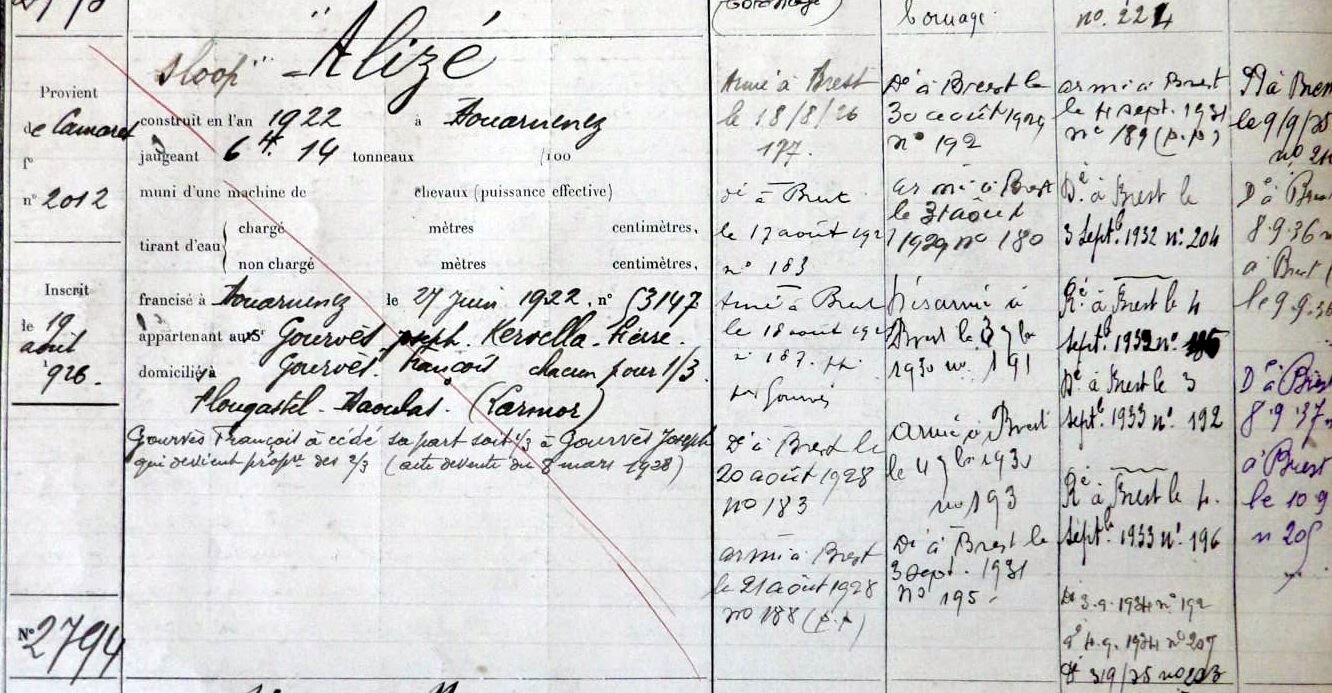 Provient
de Camaret
f°
n° 2012
Inscrit
le 19
août
1926.
N° 2794
sloop "Alizé
construit en l'an 1922 à Douarnenez
jaugeant 6 tx. 14 tonneaux /100
muni d'une machine de chevaux (puissance effective)
tirant d'eau
chargé mètres centimètres,
non chargé mètres centimètres,
francisé à Douarnenez le 27 Juin 1922, n° 53147
appartenant aux Srs Gourvès Joseph. Kervella Pierre.
domiciliés à Gourvès François chacun pour 1/3.
Plougastel-Daoulas. (Larmor)
Gourvès François à cédé sa part soit 1/3 à Gourvès Joseph
qui devient propre des 2/3 (acte devente du 8 mars 1928)
Armé à Brest
le 18/8/26
177.
Dé à Brest
le 17 août 192
n° 183
Armé à Brest
le 18 août 192
n° 187.
Gourvès
Dé à Brest le
20 août 1928
no 183
armé à Brest
le 21 août 1928
no 188 (p.p)
bornage
Dé à Brest le
30 août 1929
n° 192
armé à Brest
le 31 août
1929 no 180
Désarmé à
Brest le 3 7bre
1930 no. 191
armé à Brest
le 4 7bre 1930
no 193
Dé à Brest le
3 sept. 1931
no 195.
no. 224
armé à Brest
le 4 sept. 1931
no 189 (p.p)
Dé. à Brest le
3 Septb. 1932 n°. 204
Ré. à Brest le 4
septb. 1932 n°.
Dé à Brest le 3
septb. 1933 n°. 192
Ré à Brest le 4.
septb. 1933 n°. 196
Dé 3.9.1934 n° 192
4.9.1934 n° 207
3/9/35 no 203
à Bres
le 9/9/35
no
Dé à Bres
8.9.36
à Brest
le 9.9.36
Dé à Brest
8.9.37
à Brest
le 10 9
n 205